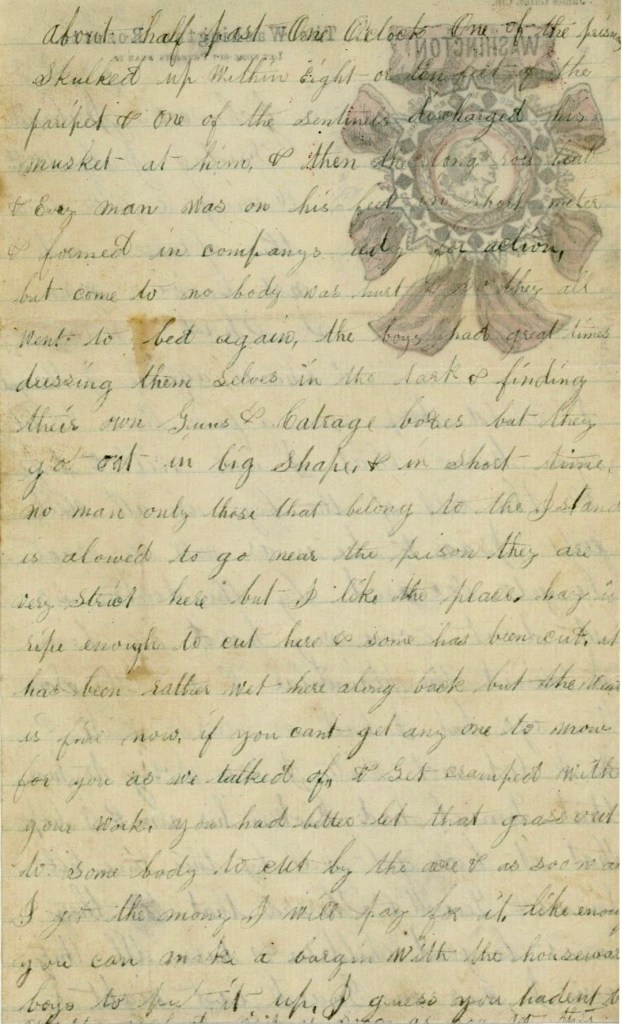 about half past One Oclock One of the prisno
Skulked up Within Eight or ten feet of the
paripet & One of the sentinels discharged his
musket at him, & then the long roll beat
& Evry man was on his feet in short meter
& formed in companys redy for action,
but come to no body was hurt & they all
Went to bed again, the boys had great times
dressing them selves in the dark & finding
their own Guns & Catrage boxes but they
got out in big Shape, & in Short time,
no man only those that belong to the Island
is alowed to go near the prison they are
very Strict here but I like the place, hay is
ripe enough to cut here & some has been cut, it
has been rather wet here along back but the
is fine now, if you cant get any one to mow
for you as we talked of, & Get cramped with
your Work, you had better let that grass out
to some body to cut by the acre & as soon as
I get the mony I will pay for it, like enough
you can make a bargin With the
boys to put it up, I guess you hadent
WASHINGTON